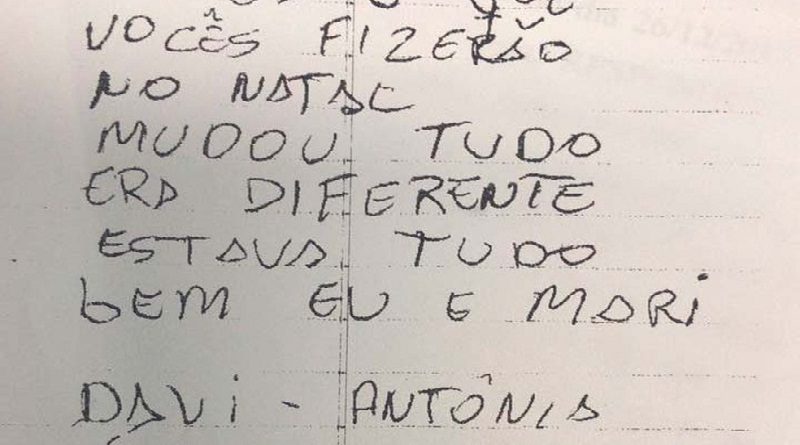 VOCÊS FIZERÃO
NO NATAL
MUDOU TUDO
ERA DIFERENTE
ESTAVA TUDO
bEM EU E MARi
DAVi - ANTÔNIA